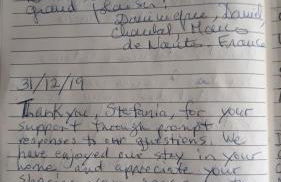 grand plaisir!
Dominique, Daniel
Chantal, Marco
de Nantes, France
31/12/19
Thank you, Stefania, for your
support through prompt
responses to our questions. We
have enjoyed our stay in your
home and appreciate your